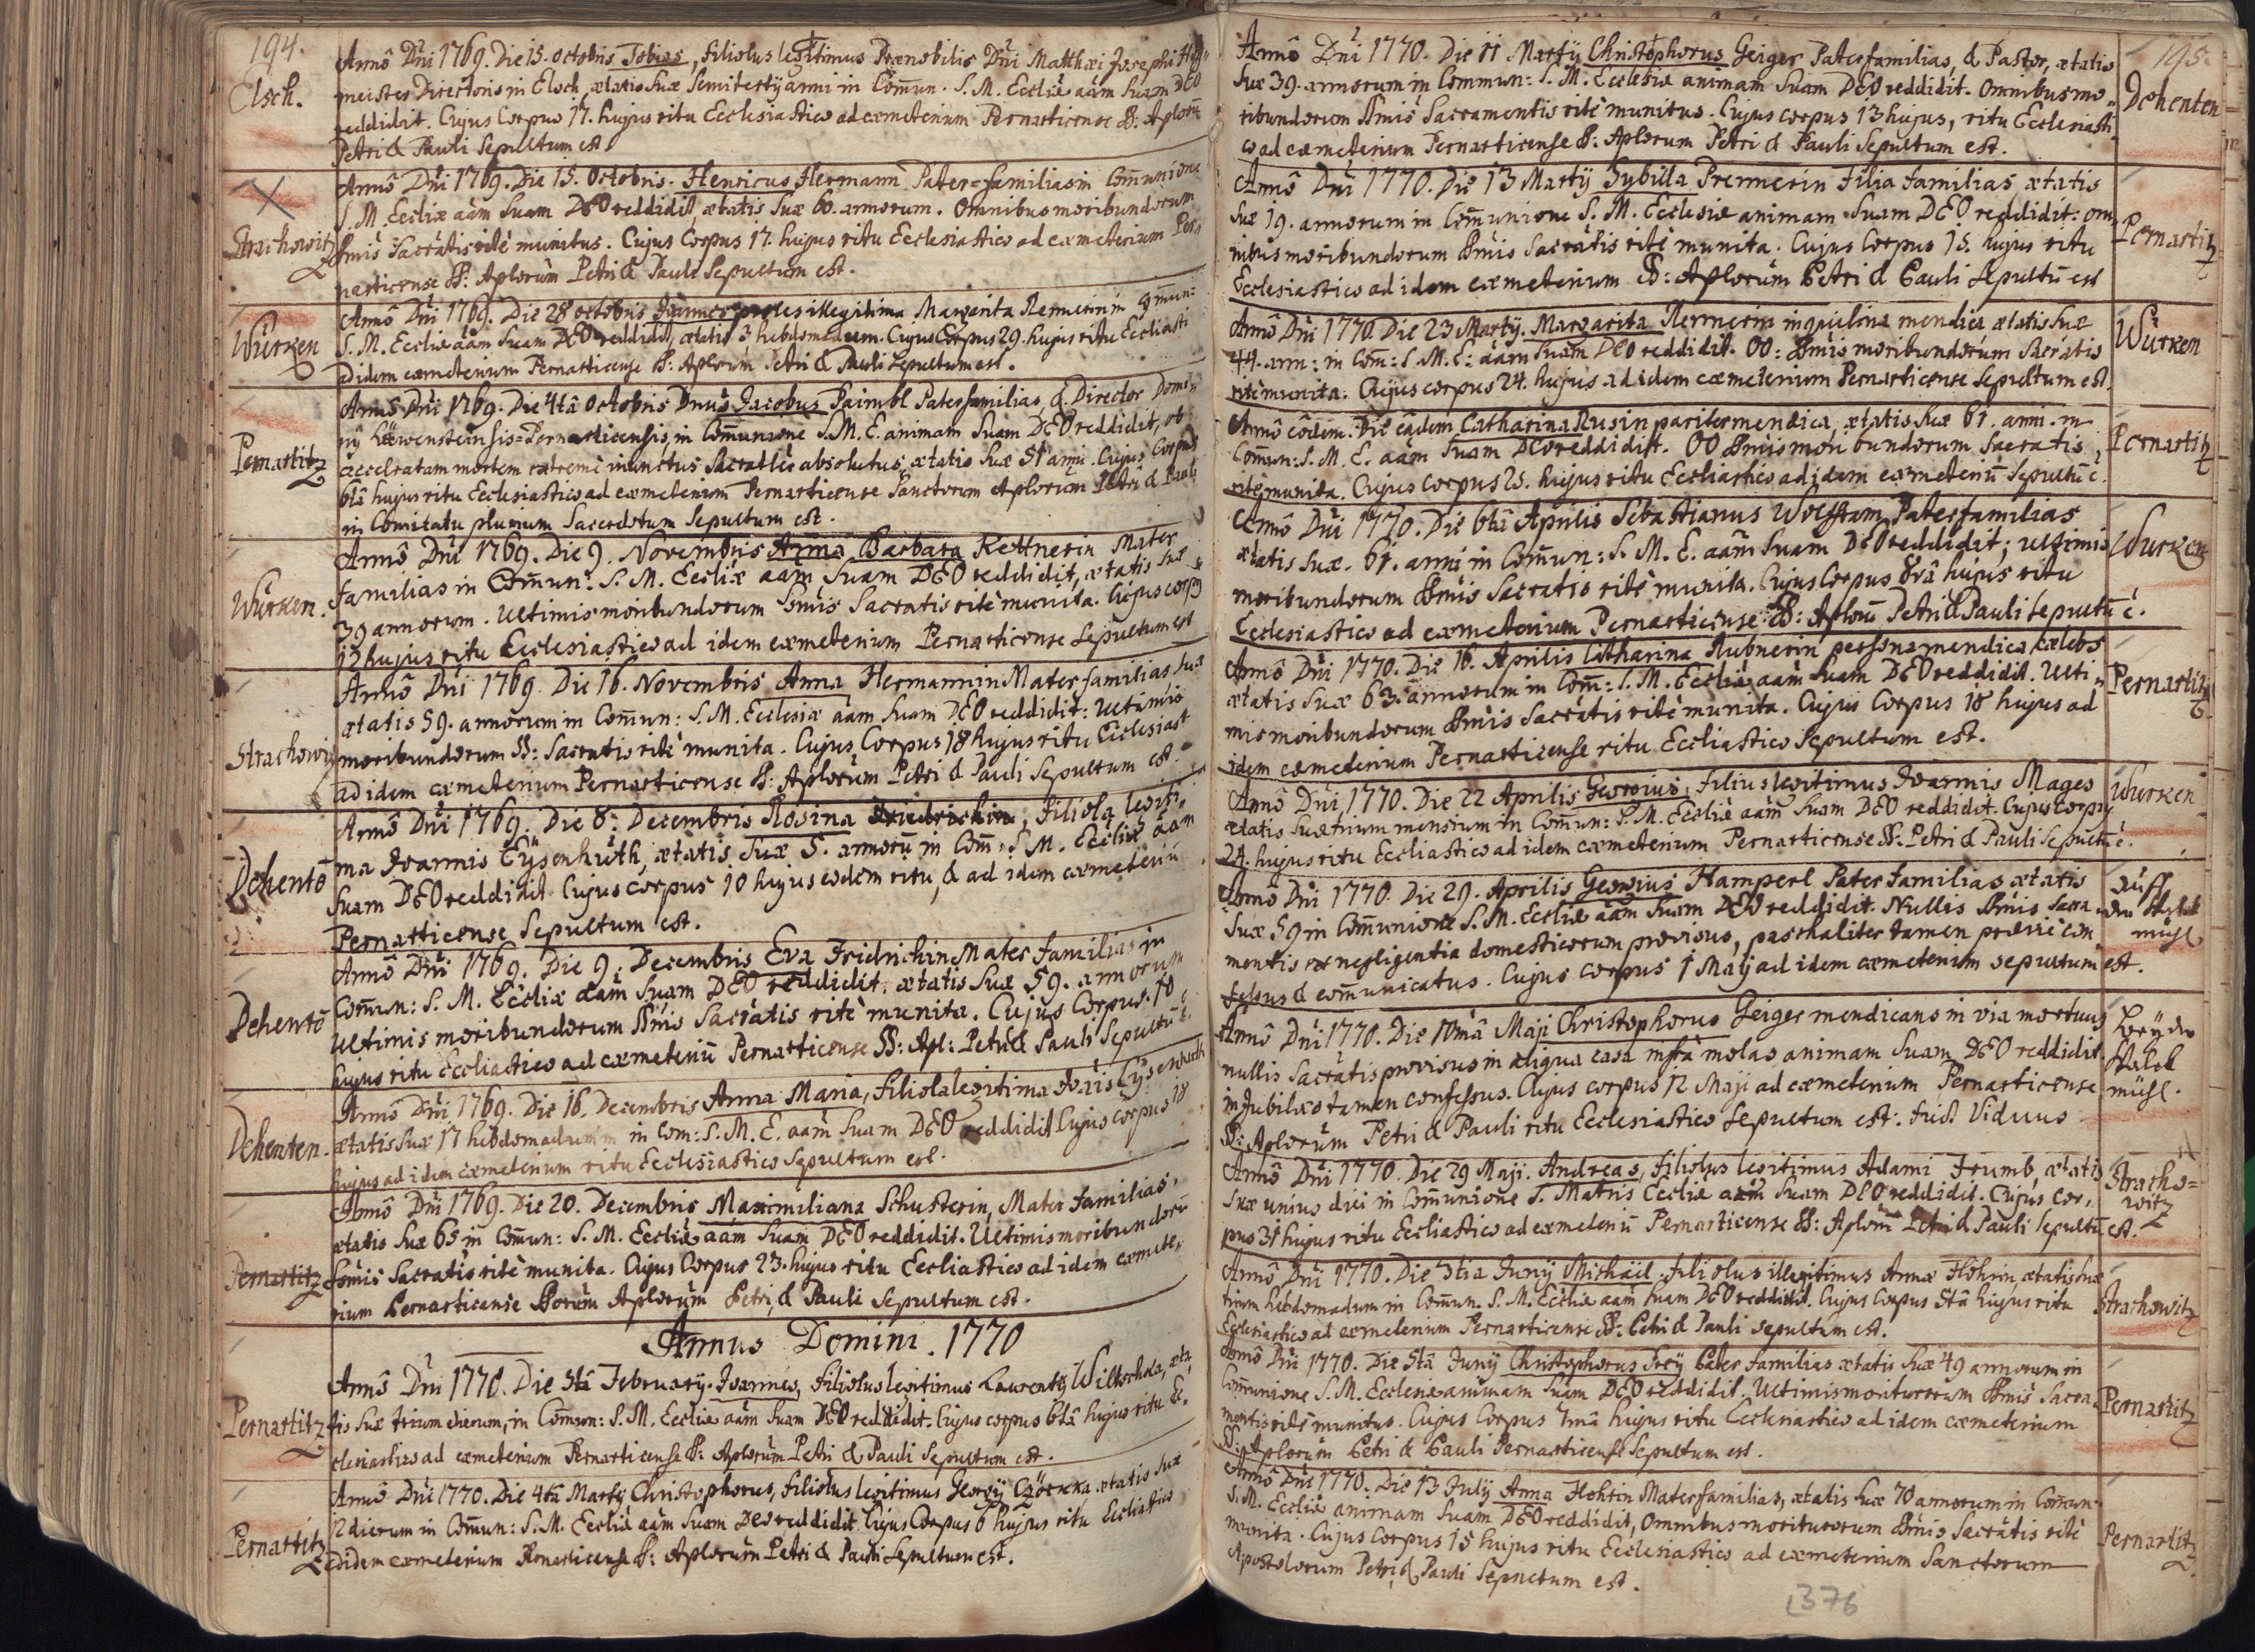 194.
Elsch.
Annô Dñi 1769. Die 15. octobris Tobias, filiolus legitimus Prænobilis Dñi Matthæi Josephi
meister Directoris in Elsch, ætatis suæ Semitertÿ anni in Comun. S. M. Ecclîæ aãm suam DEO
reddidit. Cujus Corpus 17. hujus ritu Ecclesiastico ad cæmeterium Pernarticense SS. Aplorũ
Petri & Pauli Sepultum est.
Strachowitz
Annô Dñi 1769. Die 15. Octobris. Henricus Hermann Pater-familias in Comunione
S. M. Eccliæ aãm suam DEO reddidit, ætatis suæ 60. annorum. Omnibus moribundorum
SSmis Sacrâtis ritè munitus. Cujus Corpus 17. hujus ritu Ecclesiastico ad cæmeterium Per,,
narticense SS: Aplorũm Petri & Pauli Sepultum est.
Würken
Annô Dñi 1769. Die 28 octobris Joannes proles illegitima Margarita Rennerin in Comun:
S. M. Eccliæ aãm suam DEO reddidit, ætatis 3 hebdomadum. Cujus Corpus 29. hujus ritu Eccliasti
ad idem cæmeterium Pernarticense SS: Aplorũm Petri & Pauli Sepultum est.
Pernartitz
Annô Dñi 1769. Die 4tâ Octobris Dnus Jacobus Paimbl Pater familias, & Director Domi,,
nÿ Löwensteinsis=Pernarticensis, in Comunione S. M. E. animam suam DEO reddidit, ob
acceleratam mortem extremè inunctus Sacratlis absolutus, ætatis suæ 51 anni. Cujus Corpus
6tâ hujus ritu Ecclesiastico ad cæmeterium Pernarticense Sanctorum Aplorũm Petri & Pauli
in Comitatu plurium Sacerdotum Sepultum est.
Würken.
Annô Dñi 1769. Die 9. Novembris Anna Barbara Kettnerin Mater
familias in Comun: S. M. Eccliæ aãm suam DEO reddidit, ætatis suæ
39 annorum. Ultimis moribundorum SSmis Sacratis ritè munita. Cujus corps
12 hujus ritu Ecclesiastico ad idem cæmeterium Pernarticense Sepultum est
Strachowitz
Annô Dñi 1769. Die 16. Novembris Anna Hermannin Mater familias suæ
ætatis 59. annorum in Comun: S. M. Ecclesiæ aãm suam DEO reddidit: Ultimis
moribundorum SS: Sacratis ritè munita. Cujus Corpus 18 hujus ritu Ecclesiast
ad idem cæmeterium Pernarticense SS: Aplorũm Petri & Pauli Sepultum est.
Dehentō
Annô Dñi 1769. Die 8. Decembris Rosina Friedrichin, filiola legiti,,
ma Joannis Eÿsenhuth, ætatis suæ 5. annorũ in Com: S. M. Eccliæ aãm
suam DEO reddidit. Cujus corpus 10 hujus eodem ritu, & ad idem cæmeteriũ
Pernarticense Sepultum est.
Dehentō
Annô Dñi 1769. Die 9. Decembris Eva Fridrichin Mater familias in
Comun: S. M. Eccliæ aãm suam DEO reddidit. ætatis suæ 59. annorum
Ultimis moribundorum SSmis Sacrâtis ritè munita. Cujus Corpus. 10
hujus ritu Eccliastico ad cæmeteriũ Pernarticense SS: Apl: Petri & Pauli Sepultũ ē.
Dehenten.
Annô Dñi 1769. Die 16. Decembris Anna Maria, filiola legitima Joais Eÿsenhuth
ætatis suæ 17 hebdomadum in Com: S. M. E. aãm suam DEO reddidit. Cujus corpus 18
hujus ad idem cæmeterium ritu Ecclesiastico Sepultum est.
Pernartitz
Annô Dñi 1769. Die 20. Decembris Maximiliana Schusterin, Mater familias,
ætatis suæ 65 in Comun: S. M. Eccliæ aãm suam DEO reddidit. Ultimis moribundorũ
SSmis Sacrâtis ritè munita. Cujus Corpus 23. hujus ritu Eccliastico ad idem cæmete,,
rium Pernarticense SSorũm Aplorũm Petri & Pauli Sepultum est.
Annus Domini. 1770
Pernartitz
Annô Dñi 1770. Die 5tâ Februarÿ. Joannes, filiolus legitimus Laurentÿ Wiltschka, æta,,
tis suæ trium dierum, in Comun: S. M. Eccliæ aãm suam DEO reddidit. Cujus corpus 6tâ hujus ritu Ec,,
clesiastico ad cæmeterium Pernarticense SS: Aplorũm Petri & Pauli Sepultum est.
Pernartitz
Annô Dñi 1770. Die 4tâ Martÿ Christophorus, filiolus legitimus Georgÿ ætatis suæ
12 dierum in Comun: S. M. Eccliæ aãm suam DEO reddidit. Cujus Corpus 6 hujus ritu Eccliastico
ad idem cæmeterium Pernarticense SS: Aplorũm Petri & Pauli Sepultum est.
195.
Annô Dñi 1770. Die 11 Martÿ Christophorus Geiger Pater familias, & Pastor, ætatis
suæ 39. annorum in Commun: S. M. Ecclesiæ animam suam DEO reddidit. Omnibus mo,,
ribundorum SSmis Sacramentis ritè munitus. Cujus corpus 13 hujus, ritu Ecclesiasti
co ad cæmeterium Pernarticense SS: Aplorum Petri & Pauli Sepultum est.
Dehenten
Annô Dñi 1770. Die 13 Martÿ Sybilla Prennerin Filia familias ætatis
suæ 19. annorum in Comunione S. M. Ecclesiæ animam suam DEO reddidit: om,,
nibus moribundorum SSmis Sacrâtis ritè munita. Cujus Corpus 15. hujus ritu
Ecclesiastico ad idem cæmeterium SS: Aplorũm Petri & Pauli Sepultũ est
Pernartitz
Annô Dñi 1770. Die 23 Martÿ. Margarita Rennerin inquilina mendica ætatis suæ
44. ann: in Com: S. M. E: aãm suam DEO reddidit. OO: SSmis moribundorum Sacrâtis
ritè munita. Cujus corpus 24. hujus ad idem cæmeterium Pernarticense Sepultum est.
Würken
Annô eôdem. Die eâdem Catharina Rusin pariter mendica, ætatis suæ 61. anni. in
Comun: S. M. E. aãm suam DEO reddidit. OO SSmis moribundorum Sacratis
ritè munita. Cujus corpus 25. hujus ritu Eccliastico ad idem cæmeteriũ Sepultũ ē.
Pernartitz
Annô Dñi 1770. Die 6tâ Aprilis Sebastianus Wolfram Pater familias
ætatis suæ. 61. anni in Comun: S. M. E. aãm suam DEO reddidit; ultimis
moribundorum SSmis Sacratis ritè munita. Cujus Corpus 8vâ hujus ritu
Ecclesiastico ad cæmeterium Pernarticense SS: Aplorũ Petri & Pauli Sepultũ ē.
Wurken
Annô Dñi 1770. Die 16. Aprilis Catharina Rubnerin persona mendica, cælebs
ætatis suæ 63. annorum in Com: S. M. Eccliæ aãm suam DEO reddidit. Ulti,,
mis moribundorum SSmis Sacrâtis ritè munita. Cujus Corpus 18 hujus ad
idem cæmeterium Pernarticense ritu Eccliastico Sepultum est.
Pernartitz
Annô Dñi 1770. Die 22 Aprilis Georgius, filius legitimus Joannis Mages
ætatis suæ trium mensium in Comun: S. M. Eccliæ aãm suam DEO reddidit. Cujus Corpus
24. hujus ritu Eccliastico ad idem cæmeterium Pernarticense SS. Petri & Pauli Sepultũ ē.
Wurken
Annô Dñi 1770. Die 29. Aprilis Georgius Hamperl Pater familias ætatis
suæ 59 in Comunione S. M. Eccliæ aãm suam DEO reddidit. Nullis SSmis Sacra,,
mentis ex negligentia domesticorum provisus, paschaliter tamen præviè con,,
fessus & comunicatus. Cujus corpus 1 Maÿ ad idem cæmeterium sepultum est.
auff
mühl
Annô Dñi 1770. Die 10mâ Maji Christophorus Geiger mendicans in via mortuus
nullis Sacrâtis provisus in aliqua casa infra molas animam suam DEO reddidit
in Jubilæo tamen confessus. Cujus corpus 12 Maji ad cæmeterium Pernarticense
SS: Aplorũm Petri & Pauli ritu Ecclesiastico Sepultum est: fuit Viduus.
beÿ der
mühl.
Annô Dñi 1770. Die 29 Maji. Andreas, filiolus legitimus Adami Trumb, ætatis
suæ unius diei in Comunione S. Matris Eccliæ aãm suam DEO reddidit. Cujus Cor,,
pus 31 hujus ritu Eccliastico ad cæmeteriũ Pernarticense SS: Aplorũ Petri & Pauli Sepultũ est.
Stracho=
witz
Annô Dñi 1770. Die 3tia Junÿ Michäel, filiolus illegitimus Annæ Flöhrin, ætatis suæ
trium hebdomadum in Comun. S. M. Eccliæ aãm suam DEO reddidit. Cujus Corpus 5tâ hujus ritu
Ecclesiastico ad cæmeterium Pernarticense SS: Petri & Pauli sepultum est.
Strachowitz
Annô Dñi 1770. Die 5tâ Junÿ Christophorus Freÿ Pater familias ætatis suæ 49 annorum in
Comunione S. M. Ecclesiæ animam suam DEO reddidit. Ultimis moriturorum SSmis Sacra,,
mentis ritè munitus. Cujus Corpus 7mâ hujus ritu Ecclesiastico ad idem cæmeterium
SS: Aplorũm Petri & Pauli Pernarticense Sepultum est.
Pernartitz
Annô Dñi 1770. Die 13 Julÿ Anna Flohrin Mater familias, ætatis suæ 70 annorum in Comun
S. M. Eccliæ animam suam DEO reddidit, Omnibus moriturorum SSmis Sacrâtis ritè
munita. Cujus Corpus 15 hujus ritu Ecclesiastico ad cæmeterium Sanctorum
Apostolorum Petri & Pauli Sepultum est.
Pernartitz
376